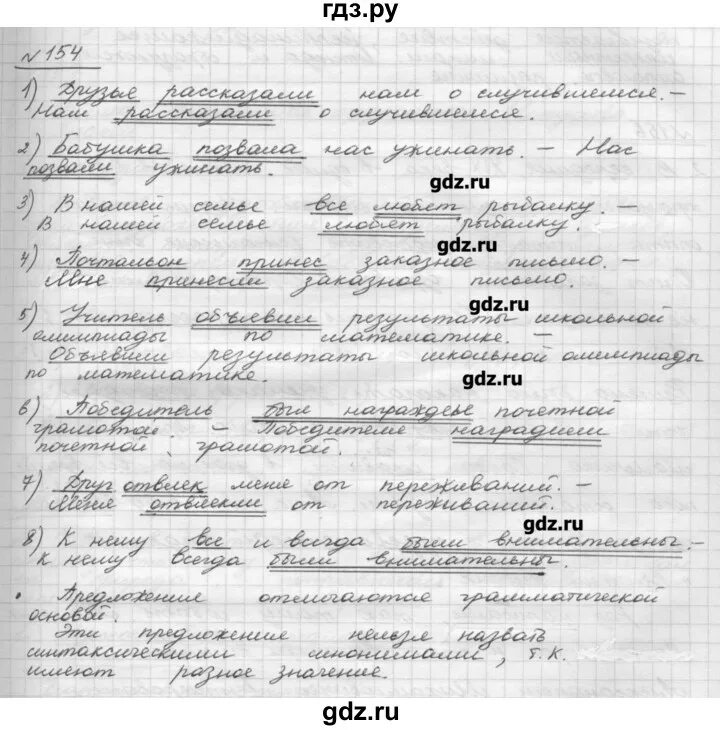 гдз.ру
№154
1) Друзья рассказали нам о случившемся. –
Нам рассказали о случившемся.
2) Бабушка позвала нас ужинать. – Нас
позвали ужинать.
gdz.ru
3) В нашей семье все любят рыбалку. –
В нашей семье любят рыбалку.
gdz.ru
4) Почтальон принес заказное письмо. –
Мне принесли заказное письмо.
gdz.ru
5) Учитель объявил результаты школьной
олимпиады по математике. –
Объявили результаты школьной олимпиады
по математике.
gdz.ru
6) Победитель был награжден почетной
грамотой. – Победителя наградили
почетной грамотой.
gdz.ru
7) Друг отвлек меня от переживаний. –
Меня отвлекли от переживаний.
gdz.ru
8) К нему все и всегда были внимательны. –
К нему всегда были внимательны.
• Предложения отличаются грамматической
основой.
Эти предложения нельзя назвать
синтаксическими синонимами, т.к.
имеют разное значение.
gdz.ru